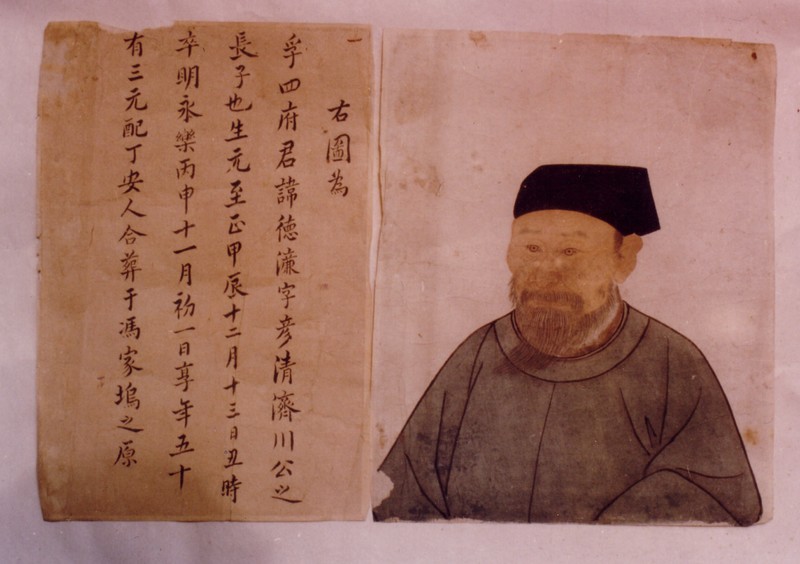 右圖為
一
孚四府君諱德濂字彦清濟川公之
長子也生元至正甲辰十二月十三日丑時
卒明永樂丙申十一月初一日享年五十
有三元配丁安人合葬于馮家塢之原